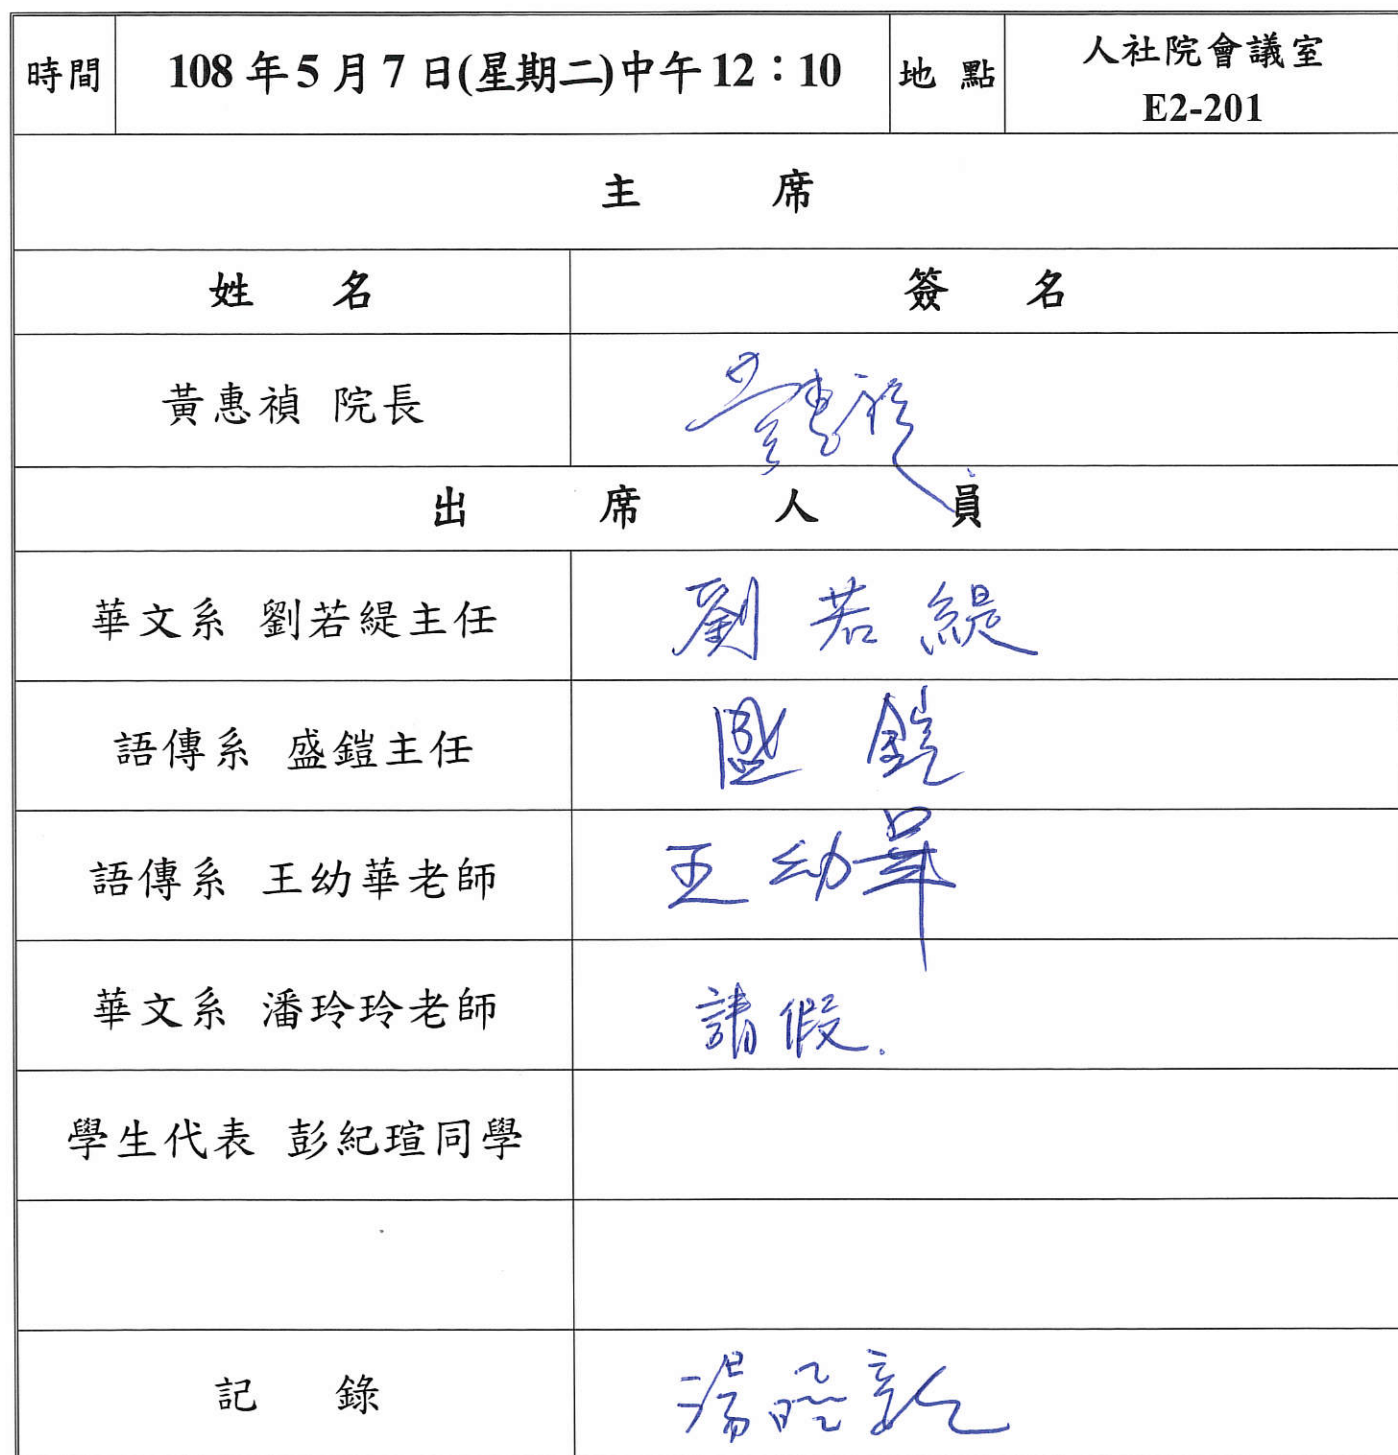 時間 108年5月7日(星期二)中午12：10 地點 人社院會議室
E2-201
主 席
姓 名 簽 名
黃惠禎 院長 黃惠禎
出 席 人 員
華文系 劉若緹主任 劉若緹
語傳系 盛鎧主任 盛鎧
語傳系 王幼華老師 王幼華
華文系 潘玲玲老師 請假.
學生代表 彭紀瑄同學
記 錄 湯